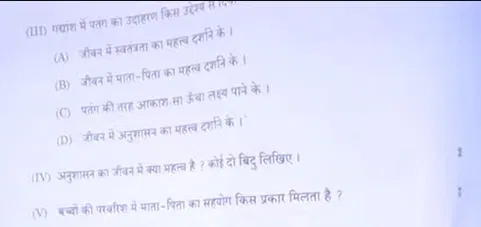 (III) गद्यांश में पतंग का उदाहरण किस उद्देश्य से
(A) जीवन में स्वतंत्रता का महत्व दर्शाने के ।
(B) जीवन में माता-पिता का महत्व दर्शाने के ।
(C) पतंग की तरह आकाश सा ऊँचा लक्ष्य पाने के ।
(D) जीवन में अनुशासन का महत्व दर्शाने के ।
(IV) अनुशासन का जीवन में क्या महत्व है ? कोई दो बिंदु लिखिए ।
(V) बच्चों की परवरिश में माता-पिता का सहयोग किस प्रकार मिलता है ?